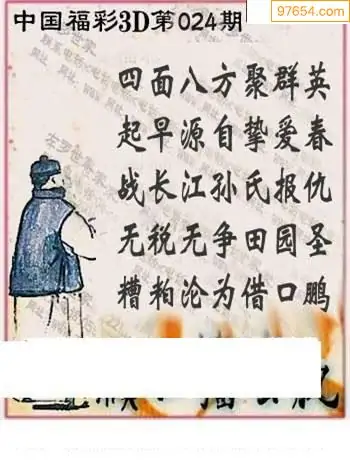 97654.com
中国福彩3D第024期
四面八方聚群英
起早源自挚爱春
战长江孙氏报仇
无税无争田园圣
糟粕沦为借口鹏